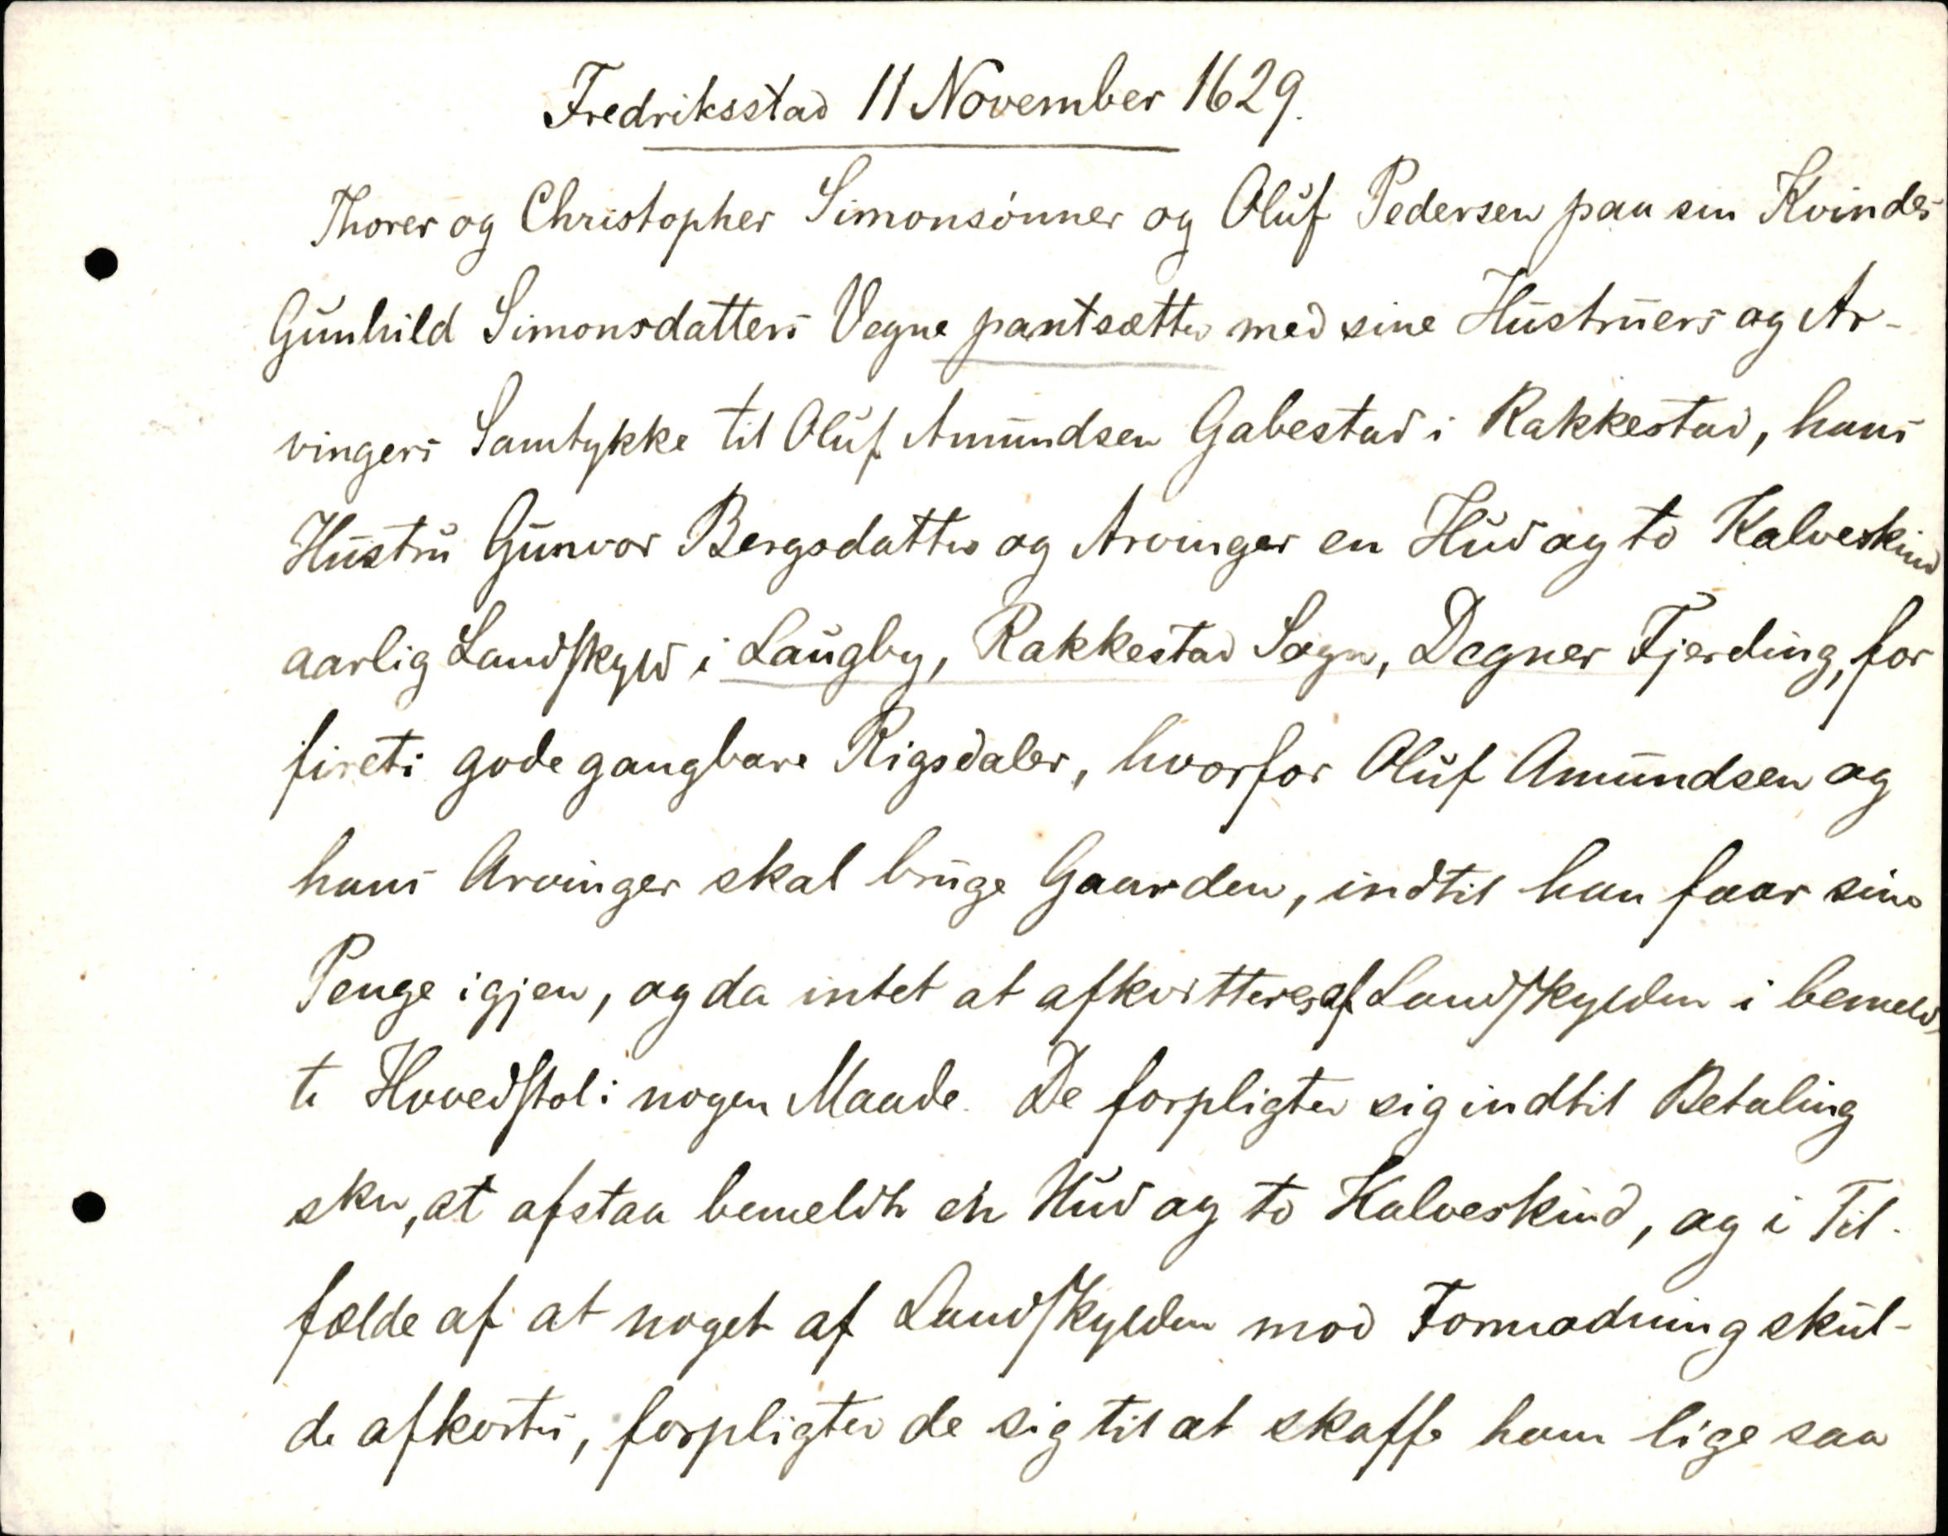 Fredriksstad 11 November 1629.
Thorer og Christopher Simonsönner og Oluf Pedersen paa sin Kvindes
Gunhild Simonsdatters Vegne pantsætter med sine Hustruers og Ar-
vingers Samtykke til Oluf Amundsen Gabestad i Rakkestad, hans
Hustru Gunvor Bergsdatter og Arvinger en Hud og to Kalveskind
aarlig Landskyld i Laugby, Rakkestad Sogn, Degner Fjerding, for
fireti gode gangbare Rigsdaler, hvorfor Oluf Amundsen og
hans Arvinger skal bruge Gaarden, indtil han faar sine
Penge igjen, og da intet at afkvitteres af Landskylden i bemeld-
te Hovedstol i nogen Maade. De forpligter sig indtil Betaling
sker, at afstaa bemeldte en Hud og to Kalveskind, og i Til-
fælde af at noget af Landskylden mod Formodning skul-
de afkortes, forpligter de sig til at skaffe ham lige saa